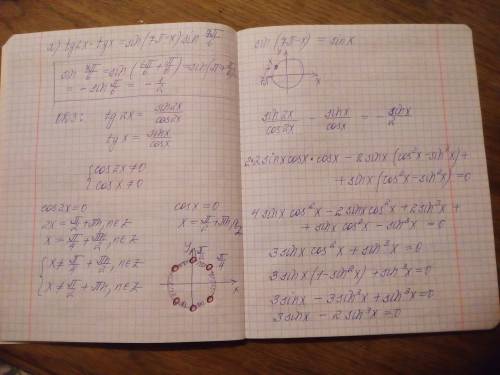 а) tg2x - tgx = sin(7π-x) sin 7π/6
sin 7π/6 = sin(6π/6 + π/6) = sin(π+π/6)
= -sin π/6 = -1/2
ОДЗ: tg 2x = sin2x/cos2x
tg x = sinx/cosx
{ cos2x≠0
cosx≠0
cos2x=0
2x = π/2+πn, n∈Z
x = π/4+πn/2, n∈Z
{ x ≠ π/4 + πn/2, n∈Z
x ≠ π/2 + πn, n∈Z
cosx=0
x = π/2+πn, n∈Z
y π/2
π/4
x
sin(7π-x) = sinx
y
7π
x
sin2x/cos2x - sinx/cosx = - sinx/2
2·2sinxcosx·cosx - 2sinx(cos²x-sin²x)+
+ sinx(cos²x-sin²x) = 0
4sinxcos²x - 2sinxcos²x + 2sin³x +
+ sinxcos²x - sin³x = 0
3sinxcos²x + sin³x = 0
3sinx(1-sin²x) + sin³x = 0
3sinx - 3sin³x + sin³x = 0
3sinx - 2sin³x = 0